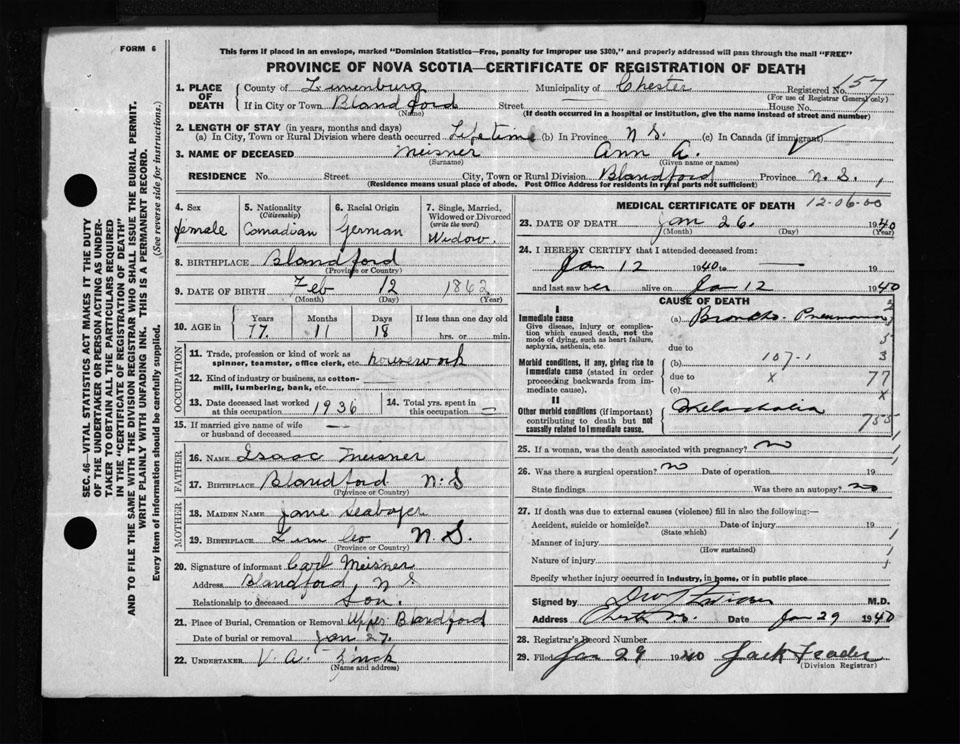 FORM 6
This form if placed in an envelope, marked "Dominion Statistics—Free, penalty for improper use $300," and properly addressed will pass through the mail "FREE"
PROVINCE OF NOVA SCOTIA—CERTIFICATE OF REGISTRATION OF DEATH
SEC. 46—VITAL STATISTICS ACT MAKES IT THE DUTY
OF THE UNDERTAKER OR PERSON ACTING AS UNDER-
TAKER TO OBTAIN ALL THE PARTICULARS REQUIRED
IN THE "CERTIFICATE OF REGISTRATION OF DEATH"
AND TO FILE THE SAME WITH THE DIVISION REGISTRAR WHO SHALL ISSUE THE BURIAL PERMIT.
WRITE PLAINLY WITH UNFADING INK. THIS IS A PERMANENT RECORD.
Every item of information should be carefully supplied. (See reverse side for instructions.)
1. PLACE OF DEATH
County of Lunenburg Municipality of Chester Registered No. 157
(For use of Registrar General only)
If in City or Town Blandford Street House No.
(Name) (If death occurred in a hospital or institution, give the name instead of street and number)
2. LENGTH OF STAY (in years, months and days)
(a) In City, Town or Rural Division where death occurred Lifetime (b) In Province N S. (c) In Canada (if immigrant)
3. NAME OF DECEASED Meisner Ann A.
(Surname) (Given name or names)
RESIDENCE No. Street City, Town or Rural Division Blandford Province N. S.
(Residence means usual place of abode. Post Office Address for residents in rural parts not sufficient)
4. Sex
female
5. Nationality
(Citizenship)
Canadian
6. Racial Origin
German
7. Single, Married,
Widowed or Divorced
(write the word)
Widow.
8. BIRTHPLACE Blandford
(Province or Country)
9. DATE OF BIRTH Feb 12 1862
(Month) (Day) (Year)
10. AGE in
Years Months Days If less than one day old
77. 11 18 hrs. or min.
OCCUPATION
11. Trade, profession or kind of work as
spinner, teamster, office clerk, etc. housework
12. Kind of industry or business, as cotton-
mill, lumbering, bank, etc. —
13. Date deceased last worked
at this occupation 1936
14. Total yrs. spent in
this occupation —
15. If married give name of wife
or husband of deceased —
FATHER
16. NAME Isaac Meisner
17. BIRTHPLACE Blandford N. S
(Province or Country)
MOTHER
18. MAIDEN NAME Jane Seaboyer
19. BIRTHPLACE Lun Co N. S.
(Province or Country)
20. Signature of informant Carl Meisner
Address Blandford, N S
Relationship to deceased Son.
21. Place of Burial, Cremation or Removal Upper Blandford
Date of burial or removal Jan 27.
22. UNDERTAKER V. A. Zinck
(Name and address)
MEDICAL CERTIFICATE OF DEATH 12-06-00
23. DATE OF DEATH Jan 26. 1940
(Month) (Day) (Year)
24. I HEREBY CERTIFY that I attended deceased from:
Jan 12 1940 to — 19
and last saw her alive on Jan 12 1940
CAUSE OF DEATH
I
Immediate cause
Give disease, injury or complica-
tion which caused death, not the
mode of dying, such as heart failure,
asphyxia, asthenia, etc.
(a) Broncho. Pneumonia
due to
Morbid conditions, if any, giving rise to
immediate cause (stated in order
proceeding backwards from im-
mediate cause).
(b) 107-1 3
due to x 77
(c) x
II
Other morbid conditions (if important)
contributing to death but not
causally related to immediate cause.
Melancholia
755
25. If a woman, was the death associated with pregnancy? no
26. Was there a surgical operation? no Date of operation 19
State findings Was there an autopsy? no
27. If death was due to external causes (violence) fill in also the following:—
Accident, suicide or homicide? Date of injury 19
(State which)
Manner of injury
(How sustained)
Nature of injury
Specify whether injury occurred in industry, in home, or in public place
Signed by M.D.
Address Chester N.S. Date Jan 29 1940
28. Registrar's Record Number
29. Filed Jan 29 1940 Jack Feader
(Division Registrar)